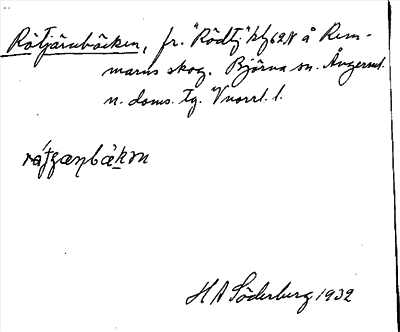 Rötjärnbäcken, fr. "Rödtj" kf 62 N å Rem-
marns skog. Björna sn. Ångerml.
n. doms. tg. Vnorrl. l.
HA Söderberg 1932